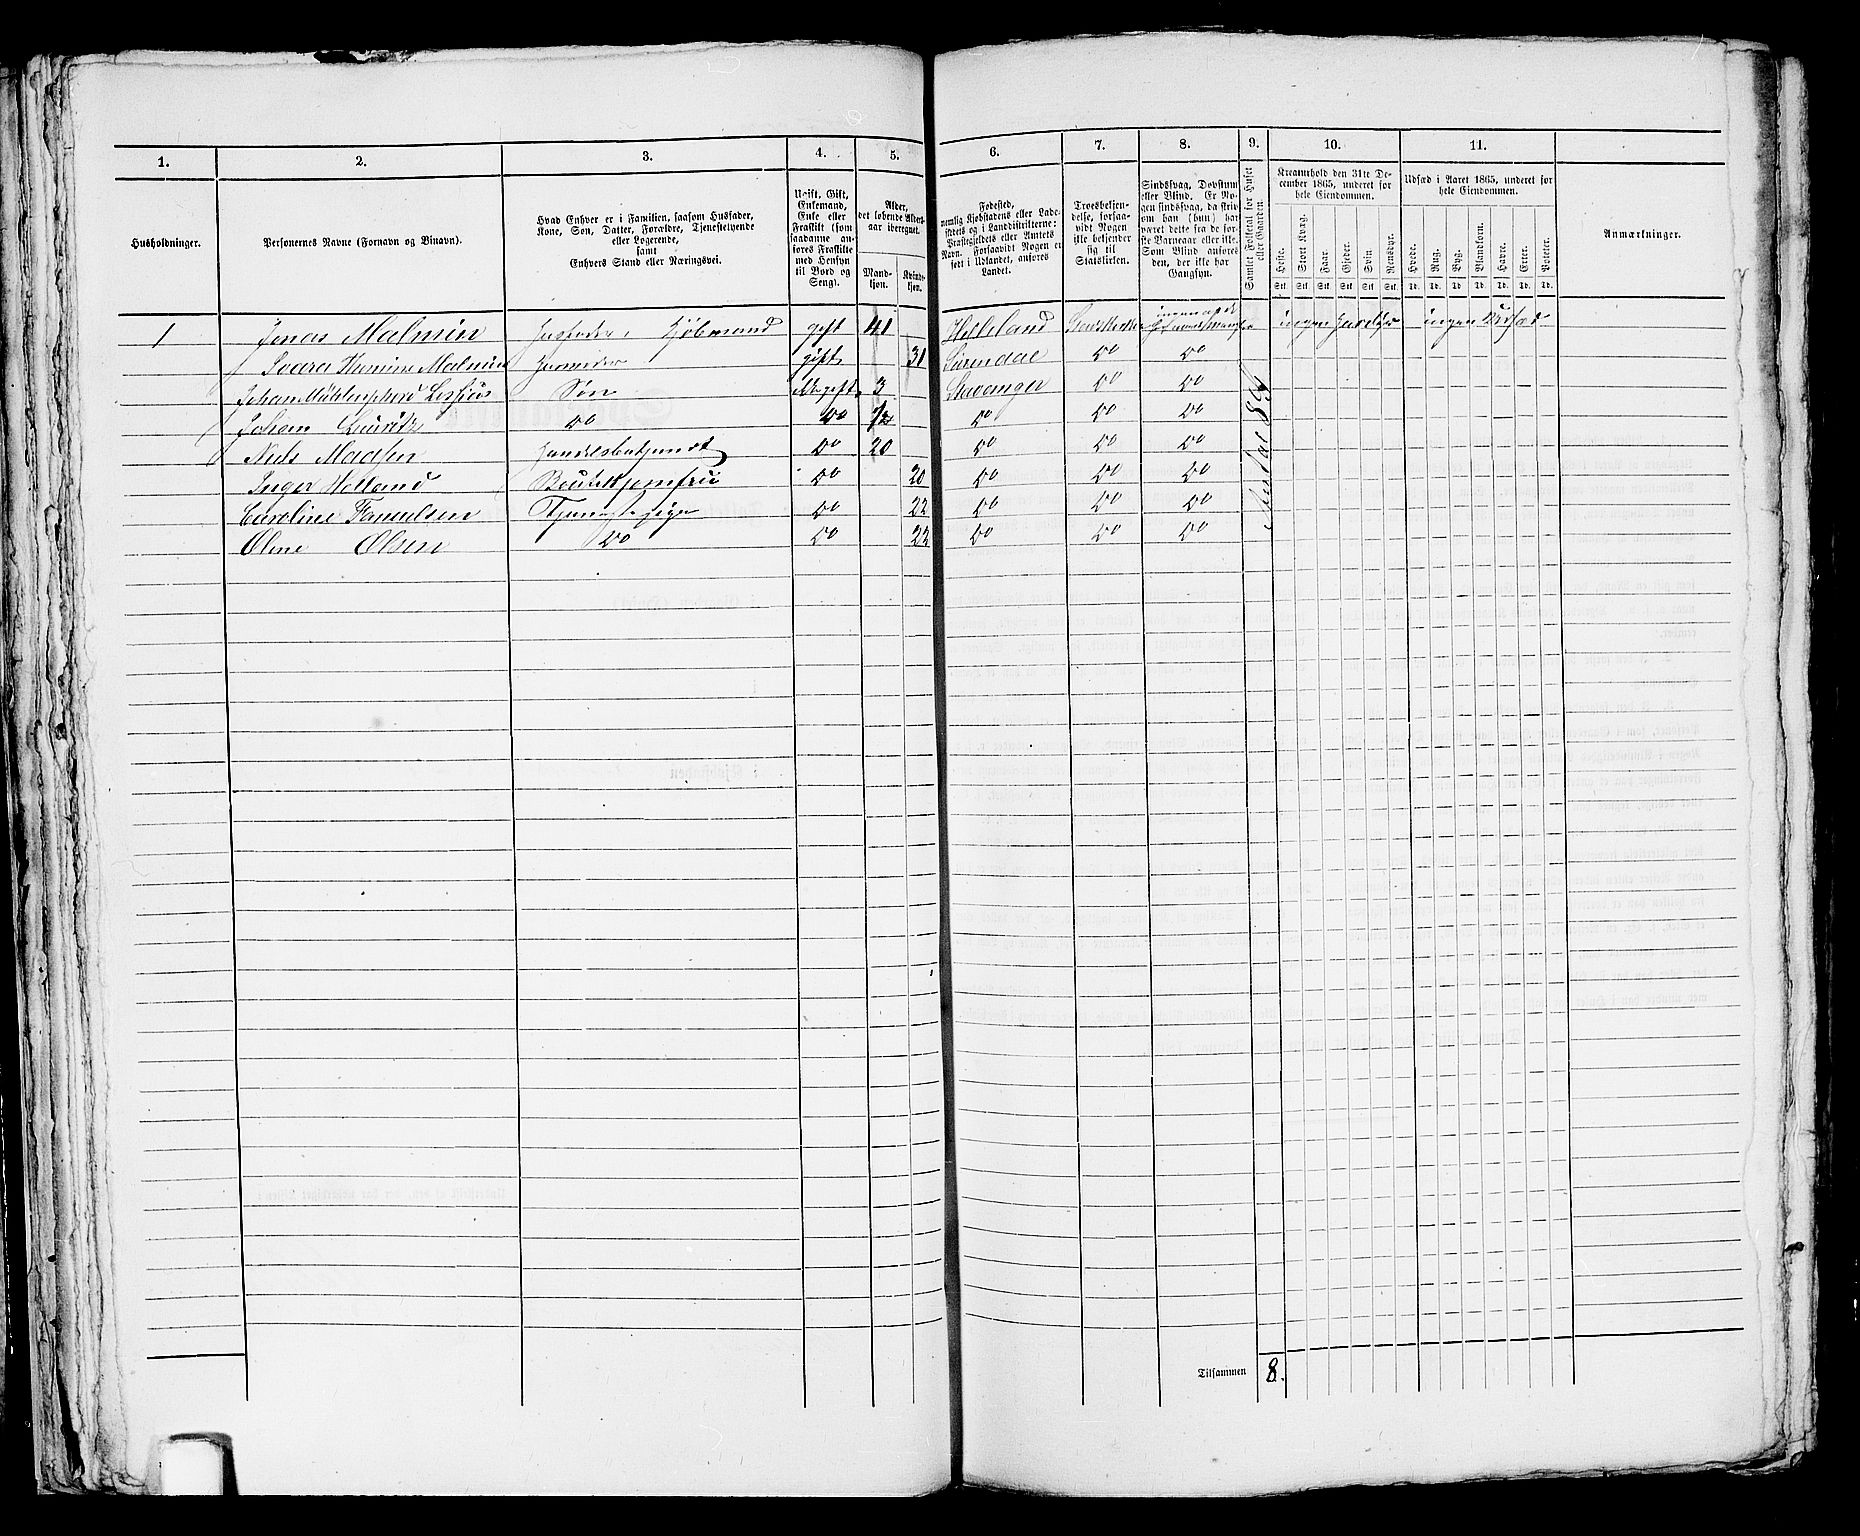 1. 2. 3. 4. 5. 6. 7. 8. 9. 10. 11.
Husholdninger.
Personernes Navne (Fornavn og Binavn).
Hvad Enhver er i Familien, saasom Husfader,
Kone, Søn, Datter, Forældre, Tjenestetyende
eller Logerende,
samt
Enhvers Stand eller Næringsvei.
Ugift, Gift,
Enkemand,
Enke eller
Fraskilt (som
saadanne an-
føres Fraskilte
med Hensyn
til Bord og
Seng).
Alder,
det løbende Alders-
aar iberegnet.
Mand-
kjøn.
Kvinde-
kjøn.
Fødested,
nemlig Kjøbstadens eller Lade-
stedets og i Landdistrikterne:
Præstegjeldets eller Amtets
Navn. Forsaavidt Nogen er
født i Udlandet, anføres
Landet.
Troesbekjen-
delse, forsaa-
vidt Nogen
ikke bekjender
sig til
Statskirken.
Sindssvag, Døvstum
eller Blind. Er No-
gen sindssvag, da skriv
om han (hun) har
været dette fra de før-
ste Barneaar eller ikke.
Som Blind anføres
den, der ikke har
Gangsyn.
Samlet Folketal for Huset
eller Gaarden.
Kreaturhold den 31te De-
cember 1865, underet for
hele Eiendommen.
Heste. Stort Kvæg. Faar. Gjeder. Svin. Rensdyr.
Stk. Stk. Stk. Stk. Stk. Stk.
Udsæd i Aaret 1865, underet for
hele Eiendommen.
Hvede. Rug. Byg. Blandkorn. Havre. Erter. Poteter.
Td. Td. Td. Td. Td. Td. Td.
Anmærkninger.
1 Jonas Malmin Husfader, Kjøbmand gift 41 Helleland Statskirken ingen ingen Udsæd
Malmin gift 31 Do Do
Johan Søn 3 Stavanger Do Do
Johan Lauritz Do Do Do Do Do
Niels Do 20 Do Do Do
Inger Helland Do 20 Do Do Do
Caroline Tjenestepige Do 22 Do Do Do
Oline Olsen Do Do 22 Do Do Do
Tilsammen 8.